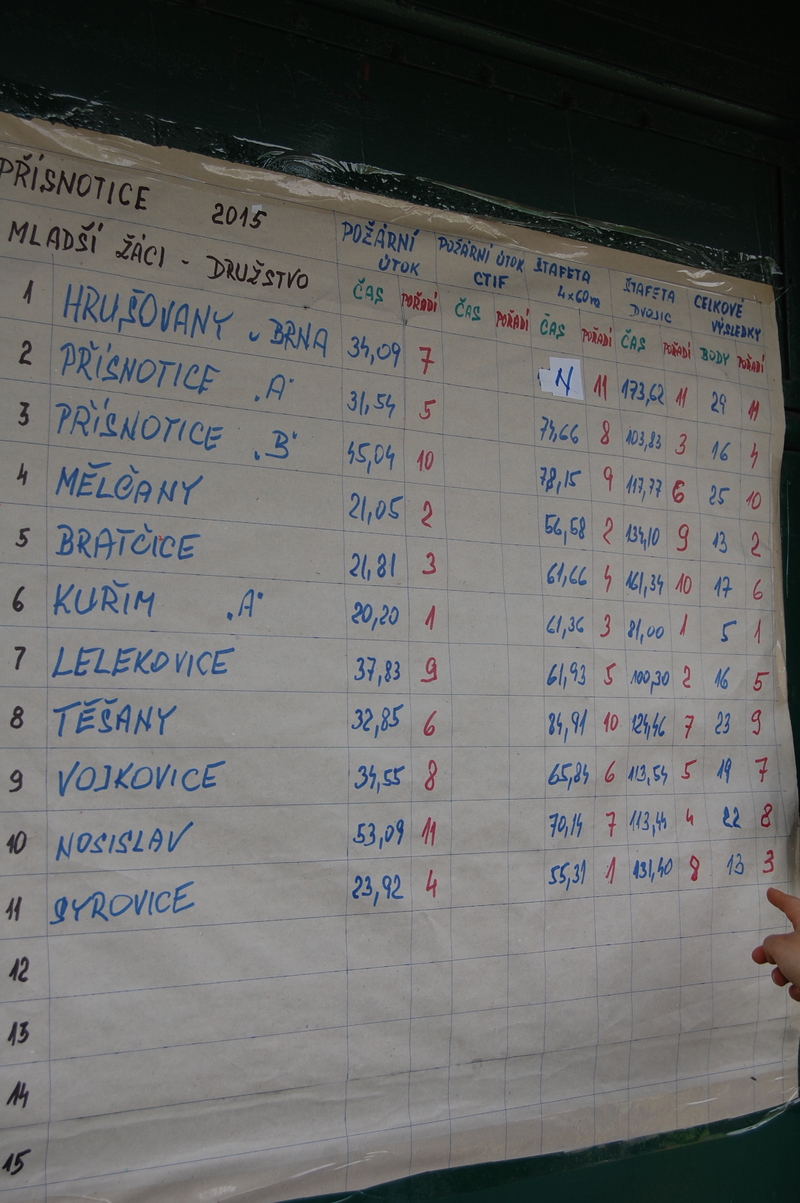 PŘÍSNOTICE 2015
MLADŠÍ ŽÁCI - DRUŽSTVO
POŽÁRNÍ ÚTOK POŽÁRNÍ ÚTOK CTIF ŠTAFETA 4x60m ŠTAFETA DVOJIC CELKOVÉ VÝSLEDKY
ČAS POŘADÍ ČAS POŘADÍ ČAS POŘADÍ ČAS POŘADÍ BODY POŘADÍ
1 HRUŠOVANY u BRNA 34,09 7 N 11 173,62 11 29 11
2 PŘÍSNOTICE "A" 31,54 5 74,66 8 103,83 3 16 4
3 PŘÍSNOTICE "B" 45,04 10 78,15 9 117,77 6 25 10
4 MĚLČANY 21,05 2 56,58 2 134,10 9 13 2
5 BRATČICE 21,81 3 61,66 4 161,34 10 17 6
6 KUŘIM "A" 20,20 1 61,36 3 81,00 1 5 1
7 LELEKOVICE 37,83 9 61,93 5 100,30 2 16 5
8 TĚŠANY 32,85 6 84,91 10 124,46 7 23 9
9 VOJKOVICE 34,55 8 65,84 6 113,54 5 19 7
10 NOSISLAV 53,09 11 70,14 7 113,44 4 22 8
11 SYROVICE 23,92 4 55,31 1 131,40 8 13 3
12
13
14
15